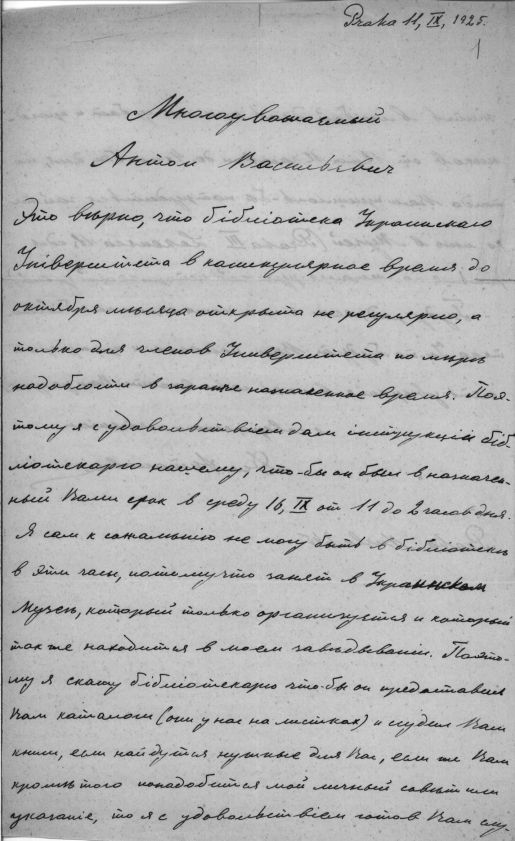 Praha 11, IX, 1925.
1
Многоуважаемый
Антон Васильевич
Это вѣрно, что бібліотека Украинскаго
Університета в каникулярное время до
октября мѣсяца открыта не регулярно, а
только для членов Університета по мѣрѣ
надобности в заранѣе назначенное время. Поэ-
тому я с удовольствіем дам інструкціи біб-
ліотекарю нашему, что-бы он был в назначен-
ный Вами срок в среду 16, IX от 11 до 2 часов дня.
Я сам к сожалѣнію не могу быть в бібліотекѣ
в эти часы, потому что занят в Украинском
Музеѣ, который только организуется и который
также находится в моем завѣдываніи. Поэто-
му я скажу бібліотекарю что-бы он предоставил
Вам каталоги (они у нас на листках) и ссудил Вам
книги, если найдутся нужные для Вас, если же Вам
кромѣ того понадобится мой личный совѣт или
указаніе, то я с удовольствіем готов Вам слу-